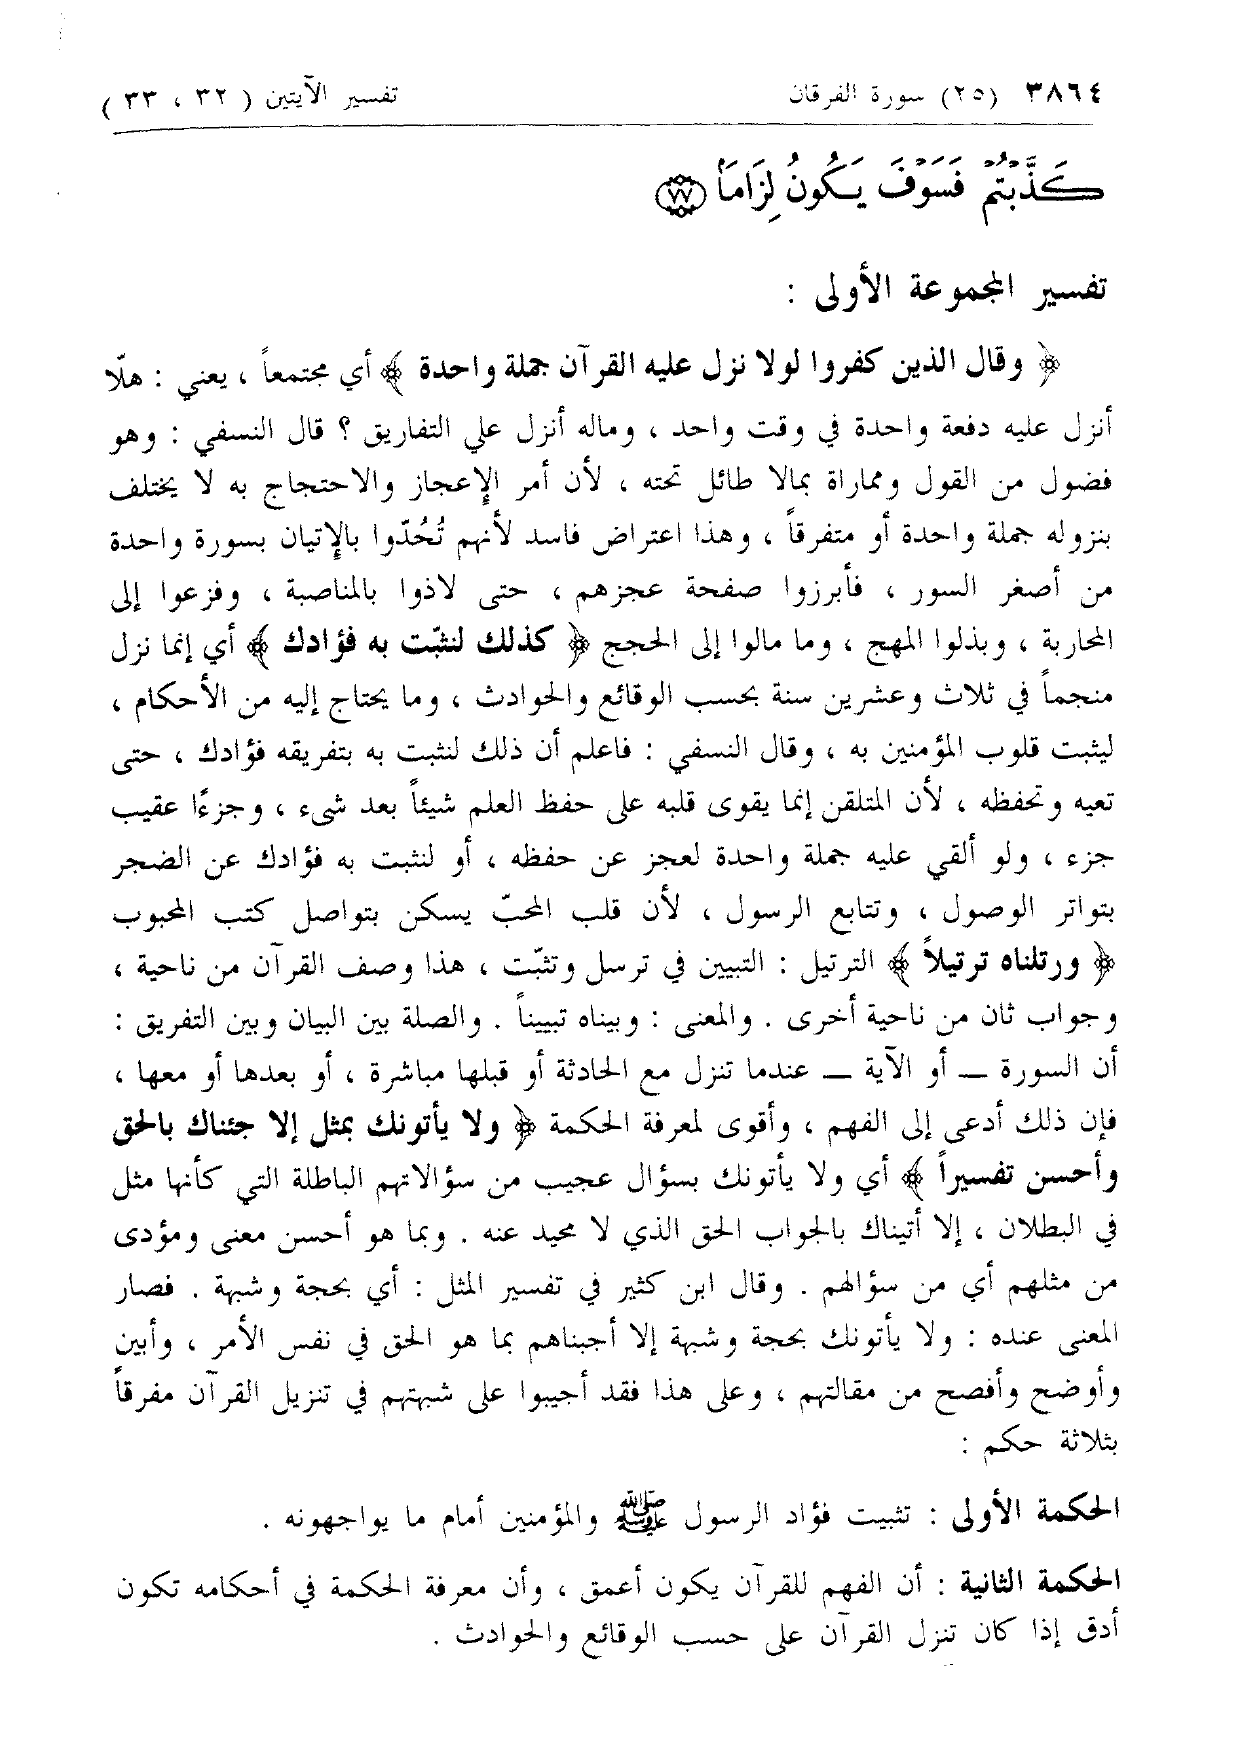 ٣٨٦٤ (٢٥) سورة الفرقان تفسير الآيتين ( ٣٢ ، ٣٣ )
كَذَّبْتُمْ فَسَوْفَ يَكُونُ لِزَامًا ﴿٧٧﴾
تفسير المجموعة الأولى :
﴿ وقال الذين كفروا لولا نزل عليه القرآن جملة واحدة ﴾ أي مجتمعاً ، يعني : هلّا
أنزل عليه دفعة واحدة في وقت واحد ، وماله أنزل علي التفاريق ؟ قال النسفي : وهو
فضول من القول ومماراة بمالا طائل تحته ، لأن أمر الإعجاز والاحتجاج به لا يختلف
بنزوله جملة واحدة أو متفرقاً ، وهذا اعتراض فاسد لأنهم تُحُدّوا بالإتيان بسورة واحدة
من أصغر السور ، فأبرزوا صفحة عجزهم ، حتى لاذوا بالمناصبة ، وفزعوا إلى
المحاربة ، وبذلوا المهج ، وما مالوا إلى الحجج ﴿ كذلك لنثبّت به فؤادك ﴾ أي إنما نزل
منجماً في ثلاث وعشرين سنة بحسب الوقائع والحوادث ، وما يحتاج إليه من الأحكام ،
ليثبت قلوب المؤمنين به ، وقال النسفي : فاعلم أن ذلك لنثبت به بتفريقه فؤادك ، حتى
تعيه وتحفظه ، لأن المتلقن إنما يقوى قلبه على حفظ العلم شيئاً بعد شىء ، وجزءًا عقيب
جزء ، ولو ألقي عليه جملة واحدة لعجز عن حفظه ، أو لنثبت به فؤادك عن الضجر
بتواتر الوصول ، وتتابع الرسول ، لأن قلب المحبّ يسكن بتواصل كتب المحبوب
﴿ ورتلناه ترتيلاً ﴾ الترتيل : التبيين في ترسل وتثبّت ، هذا وصف القرآن من ناحية ،
وجواب ثان من ناحية أخرى . والمعنى : وبيناه تبييناً . والصلة بين البيان وبين التفريق :
أن السورة ــ أو الآية ــ عندما تنزل مع الحادثة أو قبلها مباشرة ، أو بعدها أو معها ،
فإن ذلك أدعى إلى الفهم ، وأقوى لمعرفة الحكمة ﴿ ولا يأتونك بمثل إلا جئناك بالحق
وأحسن تفسيراً ﴾ أي ولا يأتونك بسؤال عجيب من سؤالاتهم الباطلة التي كأنها مثل
في البطلان ، إلا أتيناك بالجواب الحق الذي لا محيد عنه . وبما هو أحسن معنى ومؤدى
من مثلهم أي من سؤالهم . وقال ابن كثير في تفسير المثل : أي بحجة وشبهة . فصار
المعنى عنده : ولا يأتونك بحجة وشبهة إلا أجبناهم بما هو الحق في نفس الأمر ، وأبين
وأوضح وأفصح من مقالتهم ، وعلى هذا فقد أجيبوا على شبهتهم في تنزيل القرآن مفرقاً
بثلاثة حكم :
الحكمة الأولى : تثبيت فؤاد الرسول ﷺ والمؤمنين أمام ما يواجهونه .
الحكمة الثانية : أن الفهم للقرآن يكون أعمق ، وأن معرفة الحكمة في أحكامه تكون
أدق إذا كان تنزل القرآن على حسب الوقائع والحوادث .